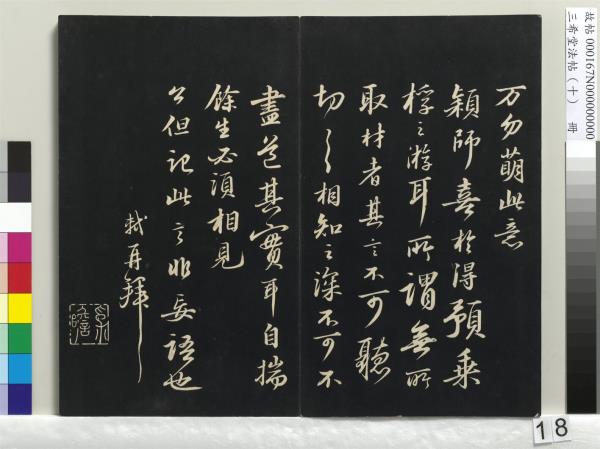 万勿萌此意
颖師喜於得預乘
桴之游耳所謂無所
取材者其言不可聽
切切相知之深不可不
盡道其實耳自揣
餘生必須相見
公但記此言非妄語也
軾再拜
故帖 000167N000000000
三希堂法帖(十) 冊
18